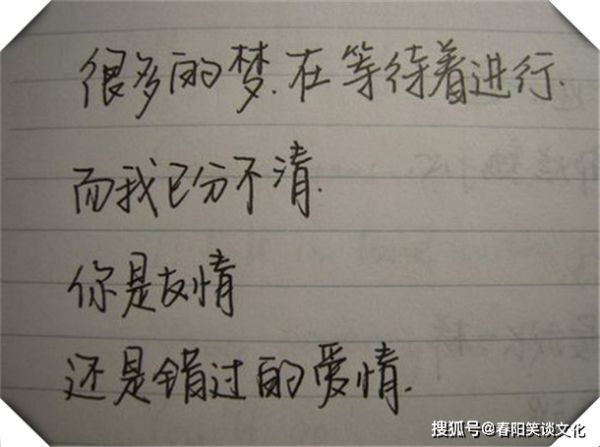 很多的梦.在等待着进行.
而我已分不清.
你是友情
还是错过的爱情.
搜狐号@春阳笑谈文化